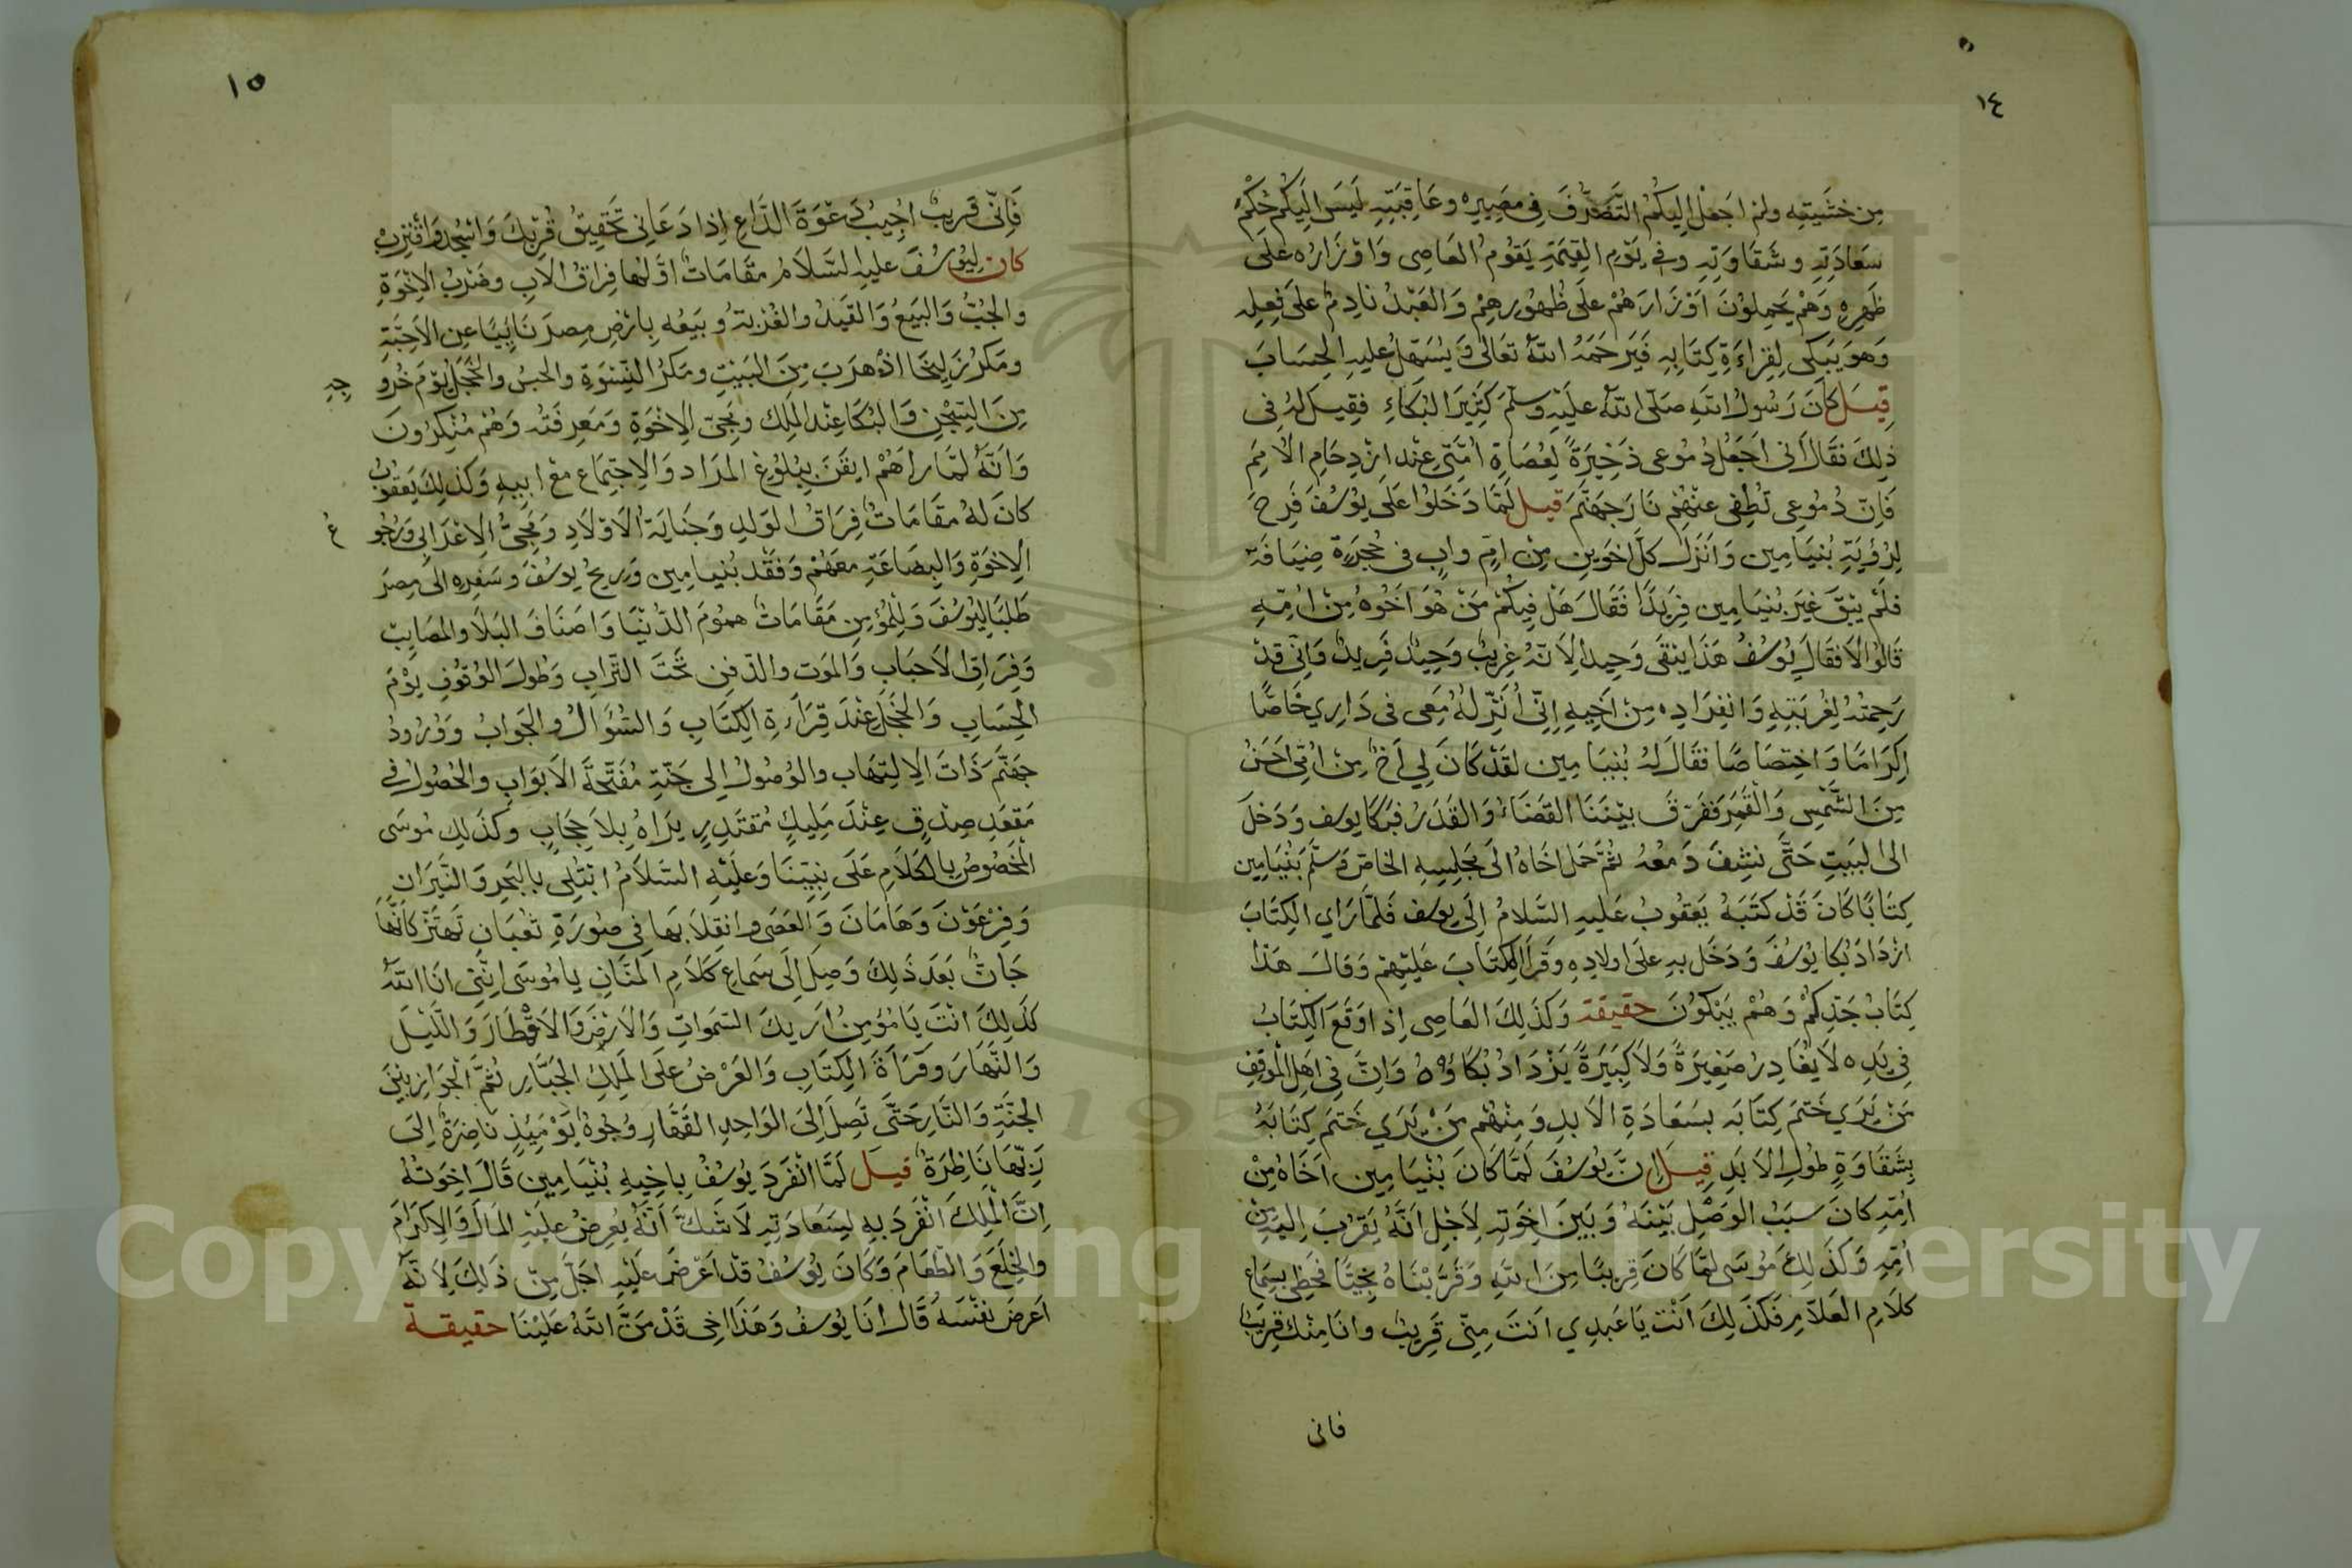 ١٤
من خشيته ولم اجعل اليكم التصرف في مصيره وعاقبته ليس اليكم حكم
سعادته وشقاوته وفي يوم القيمة يقوم العاصى واوزاره على
ظهره وهم يحملون اوزارهم على ظهورهم والعبد نادم على فعله
وهو يبكى لقراءة كتابه فيرحمه الله تعالى ويسهل عليه الحساب
قيل كان رسول الله صلى الله عليه وسلم كثير البكاء فقيل له في
ذلك فقال انى اجعل دموعى ذخيرة لعصاة امتى عند ازدحام الامم
فان دموعى تطفى عنهم نار جهنم قيل لما دخلوا على يوسف فرح
لرؤية بنيامين وانزل كل اخوين من ام واب في حجرة ضيافة
فلم يبق غير بنيامين فريدا فقال هل فيكم من هو اخوه من امه
قالوا لا فقال يوسف هذا يبقى وحيدا لانه غريب وحيد فريد وانى قد
رحمته لغربته وانفراده من اخيه انى أنزله معى في داري خاصا
اكراما واختصاصا فقال له بنيامين لقد كان لي اخ من امى احسن
من الشمس والقمر ففرق بيننا القضاء والقدر فبكا يوسف ودخل
الى البيت حتى نشف دمعه ثم حمل اخاه الى مجلسه الخاص وسلم بنيامين
كتابا كان قد كتبه يعقوب عليه السلام الى يوسف فلما راي الكتاب
ازداد بكا يوسف ودخل به على اولاده وقرا الكتاب عليهم وقال هذا
كتاب جدكم وهم يبكون حقيقة وكذلك العاصى اذا وقع الكتاب
في يده لا يغادر صغيرة ولا كبيرة يزداد بكاؤه وان في اهل الموقف
من يري ختم كتابه بسعادة الابد ومنهم من يري ختم كتابه
بشقاوة طول الابد قيل ان يوسف لما كان بنيامين اخاه من
امه كان سبب الوصل بينه وبين اخوته لاجل انه يقرب اليه من
امه وكذلك موسى لما كان قريبا من الله وقربناه نجيا فحظى بسماع
كلام العلام فكذلك انت يا عبدي انت منى قريب وانا منك قريب
فانى
١٥
فانى قريب اجيب دعوة الداع اذا دعانى تحقيق قربك واسجد واقترب
كان ليوسف عليه السلام مقامات اولها فراق الاب وضرب الاخوة
والجب والبيع والقيد والغربة وبيعه بارض مصر نايبا عن الاحبة
ومكر زليخا اذ هرب من البيت ومكر النسوة والحبس والخجل يوم خرو
جه
من السجن والبكا عند الملك ومجى الاخوة ومعرفته وهم منكرون
وانه لما راهم ايقن ببلوغ المراد والاجتماع مع ابيه وكذلك يعقوب
كان له مقامات فراق الولد وجناية الاولاد ومجئ الاعرابى ورجو
ع
الاخوة والبضاعة معهم وفقد بنيامين وريح يوسف وسفره الى مصر
طلبا ليوسف وللمؤمن مقامات هموم الدنيا واصناف البلا والمصايب
وفراق الاحباب والموت والدفن تحت التراب وطول الوقوف يوم
الحساب والخجل عند قراءة الكتاب والسؤال والجواب وورود
جهنم ذات الالتهاب والوصول الى جنة مفتحة الابواب والحصول في
مقعد صدق عند مليك مقتدر يراه بلا حجاب وكذلك موسى
المخصوص بالكلام على نبينا وعليه السلام ابتلى بالبحر والنيران
وفرعون وهامان والعصى وانقلابها في صورة ثعبان تهتز كانها
جان بعد ذلك وصل الى سماع كلام المنان يا موسى اننى انا الله
كذلك انت يا مؤمن اريك السموات والارض والاقطار والليل
والنهار وقراة الكتاب والعرض على الملك الجبار ثم الجواز بين
الجنة والنار حتى تصل الى الواحد القهار وجوه يومئذ ناضرة الى
ربها ناظرة قيل لما انفرد يوسف باخيه بنيامين قال اخوته
ان الملك انفرد به لسعادته لا شك انه يعرض عليه المال والاكرام
والخلع والطعام وكان يوسف قد اعرض عليه اجل من ذلك لانه
اعرض نفسه قال انا يوسف وهذا اخى قد من الله علينا حقيقة
Copyright © King Saud University